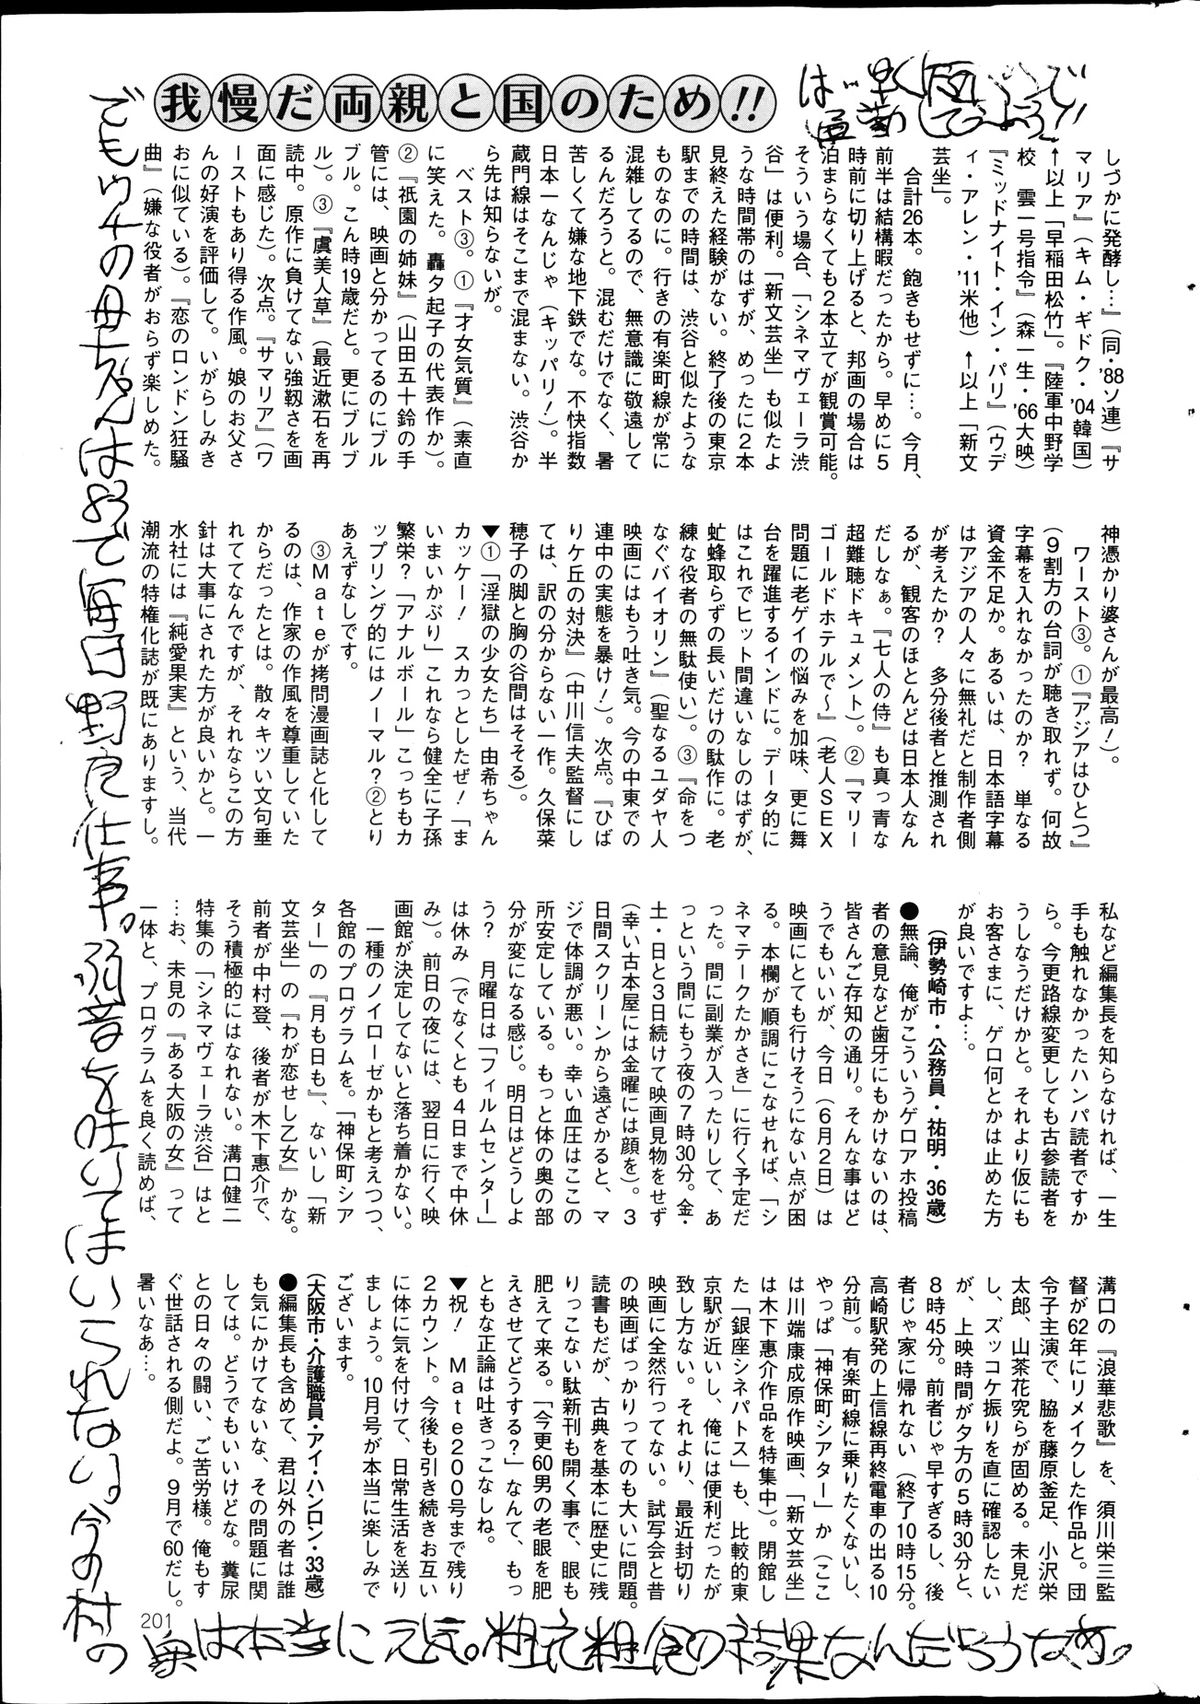 我慢だ両親と国のため!!
しづかに発酵し…』(同・'88ソ連)『サ
マリア』(キム・ギドク・'04韓国)
↑以上「早稲田松竹」。『陸軍中野学
校　雲一号指令』(森一生・'66大映)
『ミッドナイト・イン・パリ』(ウデ
ィ・アレン・'11米他)↑以上「新文
芸坐」。
　合計26本。飽きもせずに…。今月、
前半は結構暇だったから。早めに5
時前に切り上げると、邦画の場合は
泊まらなくても2本立てが観賞可能。
そういう場合、「シネマヴェーラ渋
谷」は便利。「新文芸坐」も似たよ
うな時間帯のはずが、めったに2本
見終えた経験がない。終了後の東京
駅までの時間は、渋谷と似たような
ものなのに。行きの有楽町線が常に
混雑してるので、無意識に敬遠して
るんだろうと。混むだけでなく、暑
苦しくて嫌な地下鉄でな。不快指数
日本一なんじゃ(キッパリ!)。半
蔵門線はそこまで混まない。渋谷か
ら先は知らないが。
　ベスト③。①『才女気質』(素直
に笑えた。轟夕起子の代表作か)。
②『祇園の姉妹』(山田五十鈴の手
管には、映画と分かってるのにブル
ブル。こん時19歳だと。更にブルブ
ル)。③『虞美人草』(最近漱石を再
読中。原作に負けてない強靱さを画
面に感じた)。次点。『サマリア』(ワ
ーストもあり得る作風。娘のお父さ
んの好演を評価して。いがらしみき
おに似ている)。『恋のロンドン狂騒
曲』(嫌な役者がおらず楽しめた。
神憑かり婆さんが最高!)。
　ワースト③。①『アジアはひとつ』
(9割方の台詞が聴き取れず。何故
字幕を入れなかったのか?　単なる
資金不足か。あるいは、日本語字幕
はアジアの人々に無礼だと制作者側
が考えたか?　多分後者と推測され
るが、観客のほとんどは日本人なん
だしなぁ。『七人の侍』も真っ青な
超難聴ドキュメント)。②『マリー
ゴールドホテルで〜』(老人SEX
問題に老ゲイの悩みを加味、更に舞
台を躍進するインドに。データ的に
はこれでヒット間違いなしのはずが、
虻蜂取らずの長いだけの駄作に。老
練な役者の無駄使い)。③『命をつ
なぐバイオリン』(聖なるユダヤ人
映画にはもう吐き気。今の中東での
連中の実態を暴け!)。次点。『ひば
りケ丘の対決』(中川信夫監督にし
ては、訳の分からない一作。久保菜
穂子の脚と胸の谷間はそそる)。
▼①「淫獄の少女たち」由希ちゃん
カッケー!　スカっとしたぜ!「ま
いまいかぶり」これなら健全に子孫
繁栄?「アナルボール」こっちもカ
ップリング的にはノーマル?②とり
あえずなしです。
　③Mateが拷問漫画誌と化して
るのは、作家の作風を尊重していた
からだったとは。散々キツい文句垂
れててなんですが、それならこの方
針は大事にされた方が良いかと。一
水社には『純愛果実』という、当代
潮流の特権化誌が既にありますし。
私など編集長を知らなければ、一生
手も触れなかったハンパ読者ですか
ら。今更路線変更しても古参読者を
うしなうだけかと。それより仮にも
お客さまに、ゲロ何とかは止めた方
が良いですよ…。
(伊勢崎市・公務員・祐明・36歳)
●無論、俺がこういうゲロアホ投稿
者の意見など歯牙にもかけないのは、
皆さんご存知の通り。そんな事はど
うでもいいが、今日(6月2日)は
映画にとても行けそうにない点が困
る。本欄が順調にこなせれば、「シ
ネマテークたかさき」に行く予定だ
った。間に副業が入ったりして、あ
っという間にもう夜の7時30分。金・
土・日と3日続けて映画見物をせず
(幸い古本屋には金曜には顔を)。3
日間スクリーンから遠ざかると、マ
ジで体調が悪い。幸い血圧はここの
所安定している。もっと体の奥の部
分が変になる感じ。明日はどうしよ
う?　月曜日は「フィルムセンター」
は休み(でなくとも4日まで中休
み)。前日の夜には、翌日に行く映
画館が決定してないと落ち着かない。
　一種のノイローゼかもと考えつつ、
各館のプログラムを。「神保町シア
ター」の『月も日も』、ないし「新
文芸坐」の『わが恋せし乙女』かな。
前者が中村登、後者が木下惠介で、
そう積極的にはなれない。溝口健二
特集の「シネマヴェーラ渋谷」はと
…お、未見の『ある大阪の女』って
一体と、プログラムを良く読めば、
溝口の『浪華悲歌』を、須川栄三監
督が62年にリメイクした作品と。団
令子主演で、脇を藤原釜足、小沢栄
太郎、山茶花究らが固める。未見だ
し、ズッコケ振りを直に確認したい
が、上映時間が夕方の5時30分と、
8時45分。前者じゃ早すぎるし、後
者じゃ家に帰れない(終了10時15分。
高崎駅発の上信線再終電車の出る10
分前)。有楽町線に乗りたくないし、
やっぱ「神保町シアター」か(ここ
は川端康成原作映画、「新文芸坐」
は木下惠介作品を特集中)。閉館し
た「銀座シネパトス」も、比較的東
京駅が近いし、俺には便利だったが
致し方ない。それより、最近封切り
映画に全然行ってない。試写会と昔
の映画ばっかりってのも大いに問題。
読書もだが、古典を基本に歴史に残
りっこない駄新刊も開く事で、眼も
肥えて来る。「今更60男の老眼を肥
えさせてどうする?」なんて、もっ
ともな正論は吐きっこなしね。
▼祝!　Mate200号まで残り
2カウント。今後も引き続きお互い
に体に気を付けて、日常生活を送り
ましょう。10月号が本当に楽しみで
ございます。
(大阪市・介護職員・アイ・ハンロン・33歳)
●編集長も含めて、君以外の者は誰
も気にかけてないな、その問題に関
しては。どうでもいいけどな。糞尿
との日々の闘い、ご苦労様。俺もす
ぐ世話される側だよ。9月で60だし。
暑いなあ…。
でもウチの母ちゃんは88で毎日野良仕事。弱音を吐いてはいられない。今の村の
衆は本当に元気。粗衣粗食の結果なんだろうなあ。
201